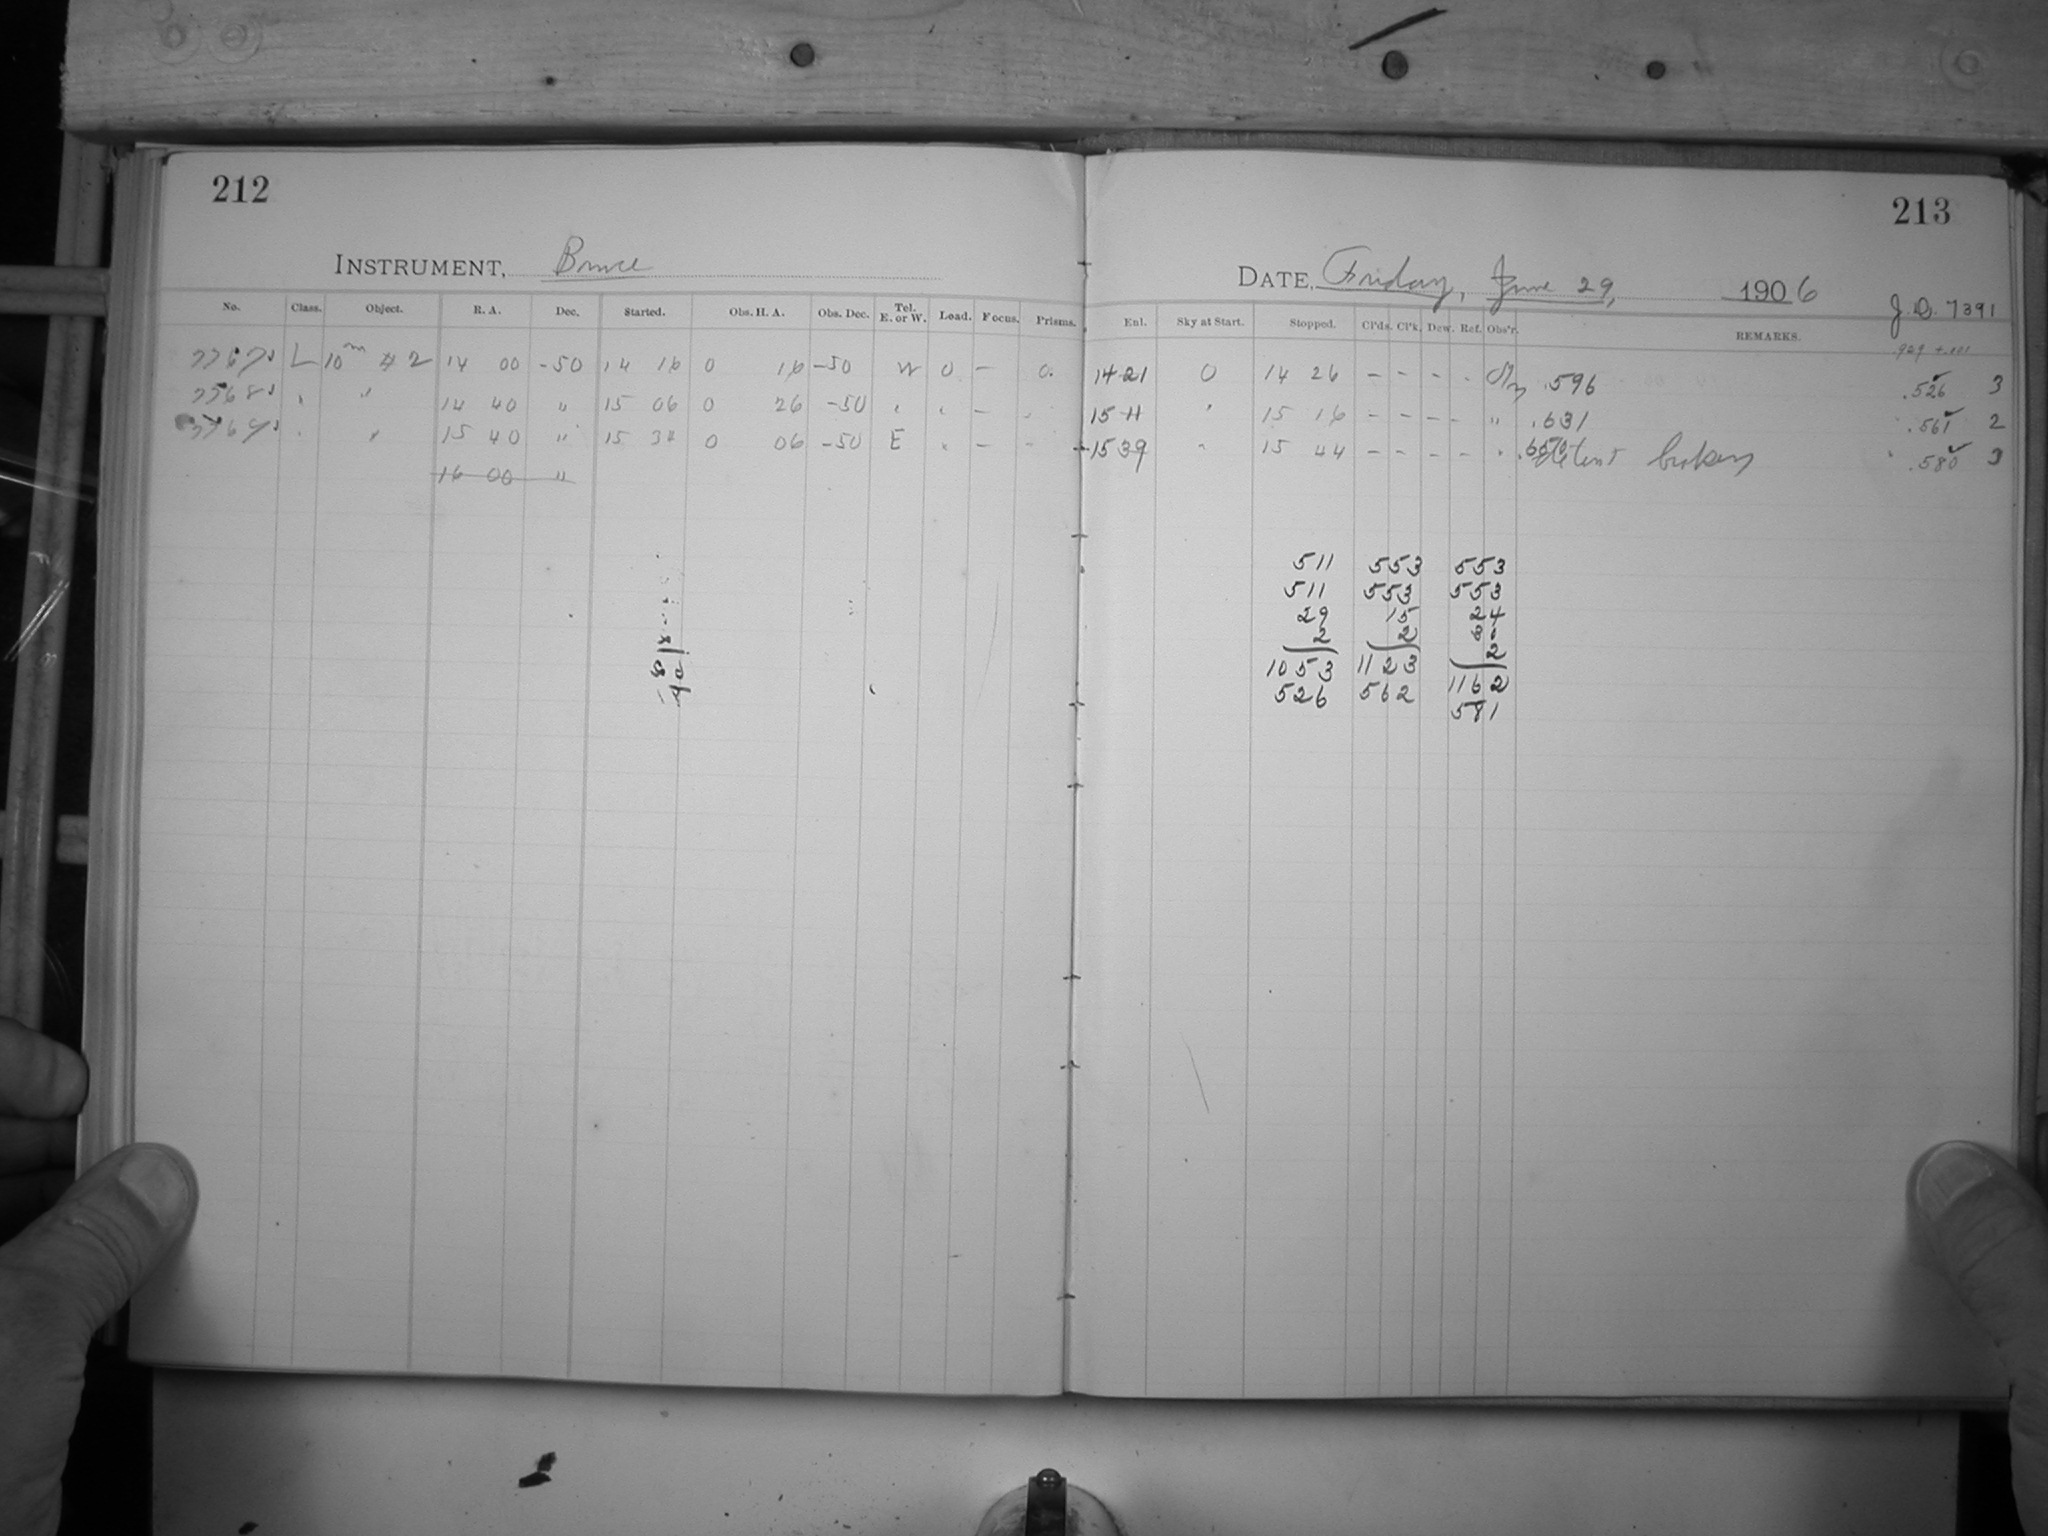 212
INSTRUMENT, Bruce
No. Class. Object. R. A. Dec. Started. Obs. H. A. Obs. Dec. Tel. E. or W. Load. Focus. Prisms.
L 10m #2 14 00 -50 14 16 0 16 -50 W 0 - 0.
" 14 40 " 15 06 0 26 -50 " " -
" 15 40 " 15 34 0 06 -50 E " - -
16 00 "
213
DATE, Friday, June 29, 1906
J.D. 7391
Exl. Sky at Start. Stopped. Cl'ds. Cl'k. Dew. Ref. Obs'r. REMARKS.
.929 + .001
14 21 0 14 26 - - - - .596 .526 3
15 11 " 15 16 - - - - " .631 .561 2
15 39 " 15 44 - - - - " Detent broken .580 3
511 553 553
511 553 553
29 15 24
2 2
2
1053 1123 1162
526 562 581